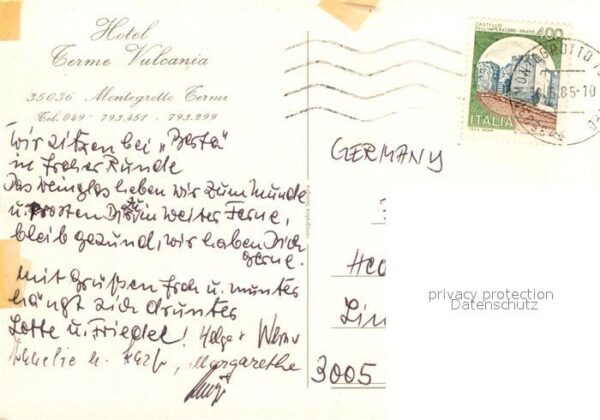 Hotel
Terme Vulcania
35036 Montegrotto Terme
Tel. 049 - 793.451 - 793.299
Wir sitzen bei „Berta“
in froher Runde
Das Weinglas heben wir zum Munde
u. prosten Dir zu in weiter Ferne,
bleib gesund, wir haben Dich
gerne.
Mit Grüßen froh u. munter
hängt sich drunter
Lotte u. Friedel! Helga + Werner
Margarethe
CASTELLO
DELL'IMPERATORE - PRATO 400
ITALIA
MONTEGROTTO
.85-10
GERMANY
Hed
Lin
3005
privacy protection
Datenschutz